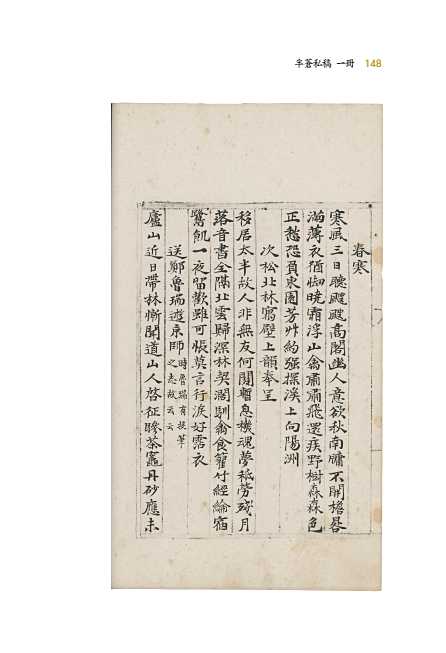 半蒼私稿 一冊 148
春寒
寒風三日聽颼颼高閣幽人意欲秋南牖不開檐晷
滿薄衣猶怯曉霜浮山禽肅肅飛還疾野樹森森色
正愁恐負東園芳艸約強探溪上向陽洲
次松北林寓壁上韻奉呈
移居太半故人非無友何関暫息機魂夢秪勞殘月
落音書全隔北雲歸深林契濶馴禽食籬竹經綸宿
鷺飢一夜留歡雖可悵莫言行淚好露衣
送鄭魯瑞遊京師 時魯瑞有投筆
之志故云云
廬山近日帶林慚聞道山人啓征驂茶竈丹砂應未